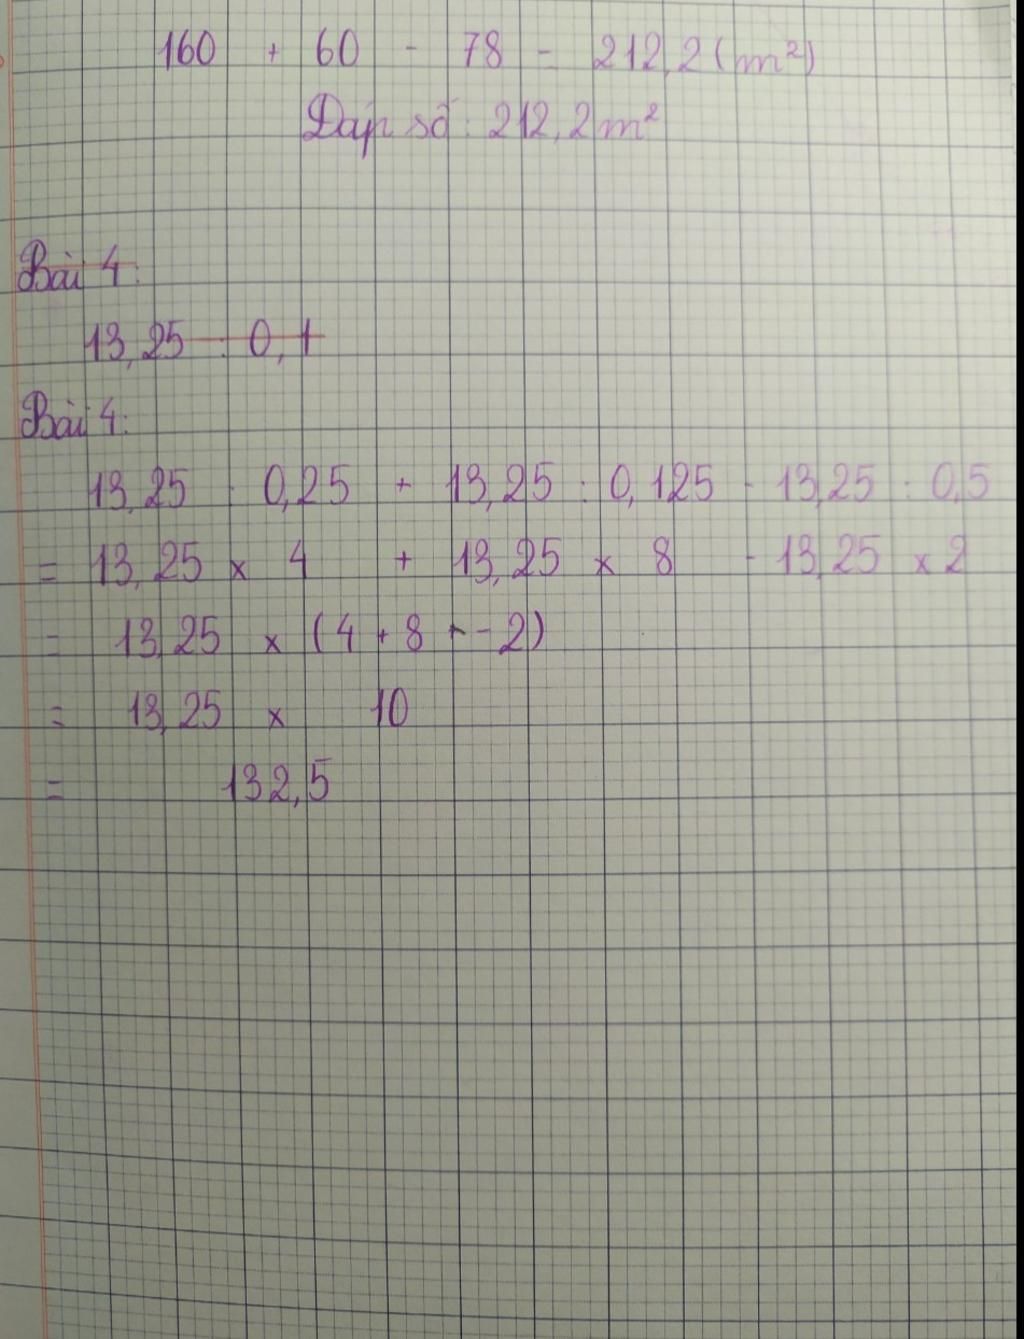 160 + 60 - 78 = 212,2 (m²)
Đáp số: 212,2 m²
Bài 4:
13,25 : 0,1
Bài 4:
13,25 : 0,25 + 13,25 : 0,125 - 13,25 : 0,5
= 13,25 x 4 + 13,25 x 8 - 13,25 x 2
= 13,25 x (4 + 8 - - 2)
= 13,25 x 10
= 132,5